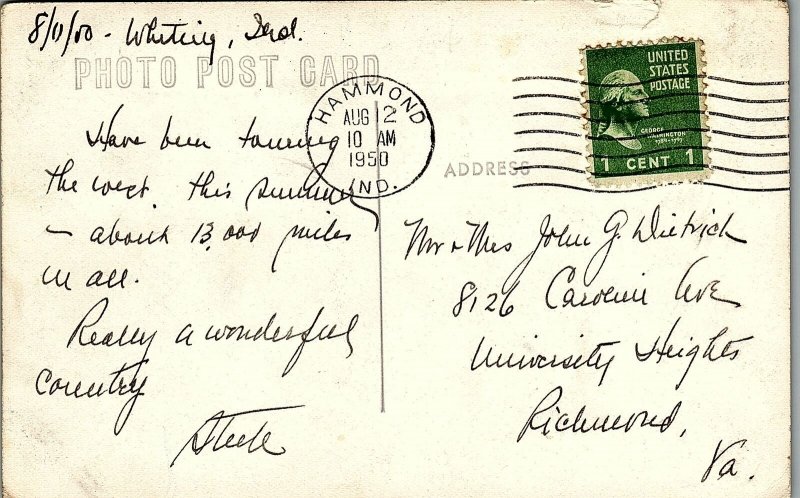 8/11/50 - Whiting, Ind.
PHOTO POST CARD
HAMMOND
AUG 12
10 AM
1950
IND.
UNITED
STATES
POSTAGE
GEORGE
WASHINGTON
1789-1797
1 CENT 1
ADDRESS
Have been touring
the west this summer
- about 13,000 miles
in all.
Really a wonderful
country
Mr & Mrs John G. Dietrich
8126 Ave
University Heights
Richmond,
Va.